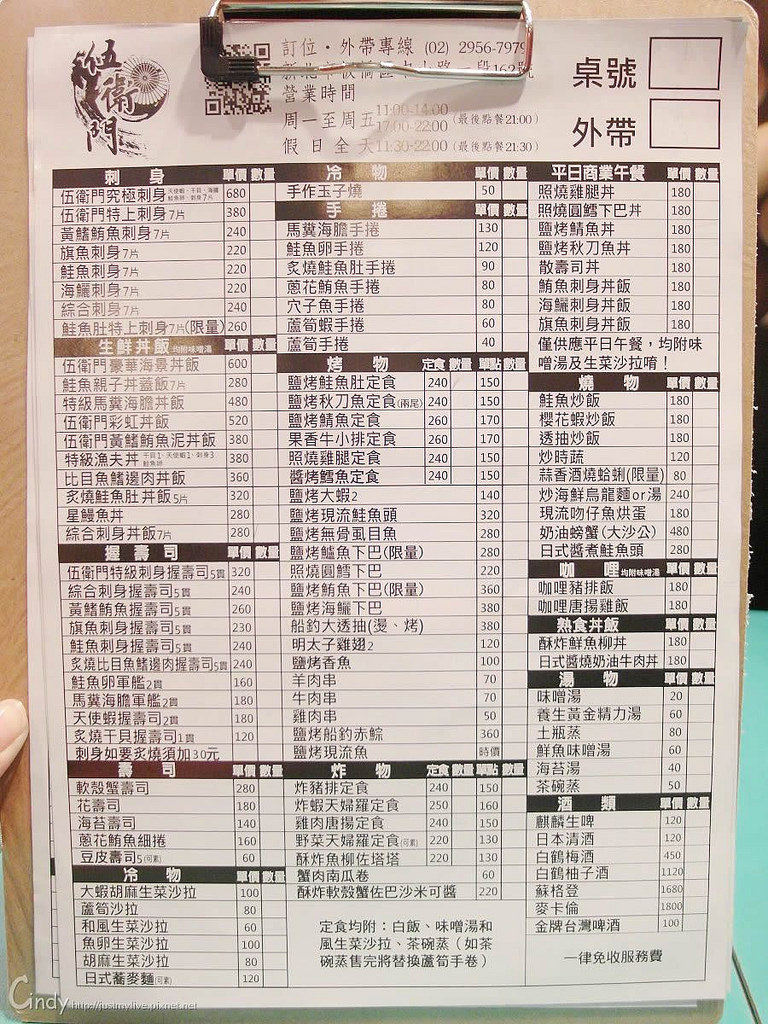 伍衛門
訂位・外帶專線 (02) 2956-7979
營業時間
周一至周五 11:00-14:00
17:00-22:00 (最後點餐21:00)
假日全天 11:30-22:00 (最後點餐21:30)
桌號
外帶
刺身 單價 數量
伍衛門究極刺身 680
伍衛門特上刺身7片 380
黃鰭鮪魚刺身7片 240
旗魚刺身7片 220
鮭魚刺身7片 220
海鱺刺身7片 220
綜合刺身7片 240
鮭魚肚特上刺身7片(限量) 260
生鮮丼飯 均附味噌湯 單價 數量
伍衛門豪華海景丼飯 600
鮭魚親子丼蓋飯7片 280
特級馬糞海膽丼飯 480
伍衛門彩虹丼飯 520
伍衛門黃鰭鮪魚泥丼飯 380
特級漁夫丼 380
比目魚鰭邊肉丼飯 360
炙燒鮭魚肚丼飯5片 320
星鰻魚丼 280
綜合刺身丼飯7片 280
握壽司 單價 數量
伍衛門特級刺身握壽司5貫 320
綜合刺身握壽司5貫 240
黃鰭鮪魚握壽司5貫 260
旗魚刺身握壽司5貫 230
鮭魚刺身握壽司5貫 240
炙燒比目魚鰭邊肉握壽司5貫 240
鮭魚卵軍艦2貫 160
馬糞海膽軍艦2貫 180
天使蝦握壽司2貫 180
炙燒干貝握壽司1貫 120
刺身如要炙燒須加30元
壽司 單價 數量
軟殼蟹壽司 280
花壽司 180
海苔壽司 140
蔥花鮪魚細捲 160
豆皮壽司5(可素) 60
冷物 單價 數量
大蝦胡麻生菜沙拉 100
蘆筍沙拉 80
和風生菜沙拉 60
魚卵生菜沙拉 100
胡麻生菜沙拉 80
日式蕎麥麵(可素) 120
冷物 單價 數量
手作玉子燒 50
手捲 單價 數量
馬糞海膽手捲 130
鮭魚卵手捲 120
炙燒鮭魚肚手捲 90
蔥花鮪魚手捲 80
穴子魚手捲 80
蘆筍蝦手捲 60
蘆筍手捲 40
烤物 定食 數量 單點 數量
鹽烤鮭魚肚定食 240 150
鹽烤秋刀魚定食(兩尾) 240 150
鹽烤鯖魚定食 260 170
果香牛小排定食 260 170
照燒雞腿定食 240 150
醬烤鱈魚定食 240 150
鹽烤大蝦2 140
鹽烤現流鮭魚頭 320
鹽烤無骨虱目魚 280
鹽烤鱸魚下巴(限量) 280
照燒圓鱈下巴 220
鹽烤鮪魚下巴(限量) 360
鹽烤海鱺下巴 380
船釣大透抽(燙、烤) 380
明太子雞翅2 120
鹽烤香魚 100
羊肉串 70
牛肉串 70
雞肉串 50
鹽烤船釣赤鯮 360
鹽烤現流魚 時價
炸物 定食 數量 單點 數量
炸豬排定食 240 150
炸蝦天婦羅定食 250 160
雞肉唐揚定食 240 150
野菜天婦羅定食(可素) 220 130
酥炸魚柳佐塔塔 220 130
蟹肉南瓜卷 60
酥炸軟殼蟹佐巴沙米可醬 220
定食均附：白飯、味噌湯和
風生菜沙拉、茶碗蒸（如茶
碗蒸售完將替換蘆筍手卷）
平日商業午餐 單價 數量
照燒雞腿丼 180
照燒圓鱈下巴丼 180
鹽烤鯖魚丼 180
鹽烤秋刀魚丼 180
散壽司丼 180
鮪魚刺身丼飯 180
海鱺刺身丼飯 180
旗魚刺身丼飯 180
僅供應平日午餐，均附味
噌湯及生菜沙拉唷！
燒物 單價 數量
鮭魚炒飯 180
櫻花蝦炒飯 180
透抽炒飯 180
炒時蔬 120
蒜香酒燒蛤蜊(限量) 80
炒海鮮烏龍麵or湯 240
現流吻仔魚烘蛋 180
奶油螃蟹(大沙公) 480
日式醬煮鮭魚頭 280
咖哩 均附味噌湯 單價 數量
咖哩豬排飯 180
咖哩唐揚雞飯 180
熟食丼飯 單價 數量
酥炸鮮魚柳丼 180
日式醬燒奶油牛肉丼 180
湯物 單價 數量
味噌湯 20
養生黃金精力湯 60
土瓶蒸 80
鮮魚味噌湯 60
海苔湯 40
茶碗蒸 50
酒類 單價 數量
麒麟生啤 120
日本清酒 120
白鶴梅酒 450
白鶴柚子酒 1120
蘇格登 1680
麥卡倫 1800
金牌台灣啤酒 100
一律免收服務費
Cindy http://justmylive.pixnet.net